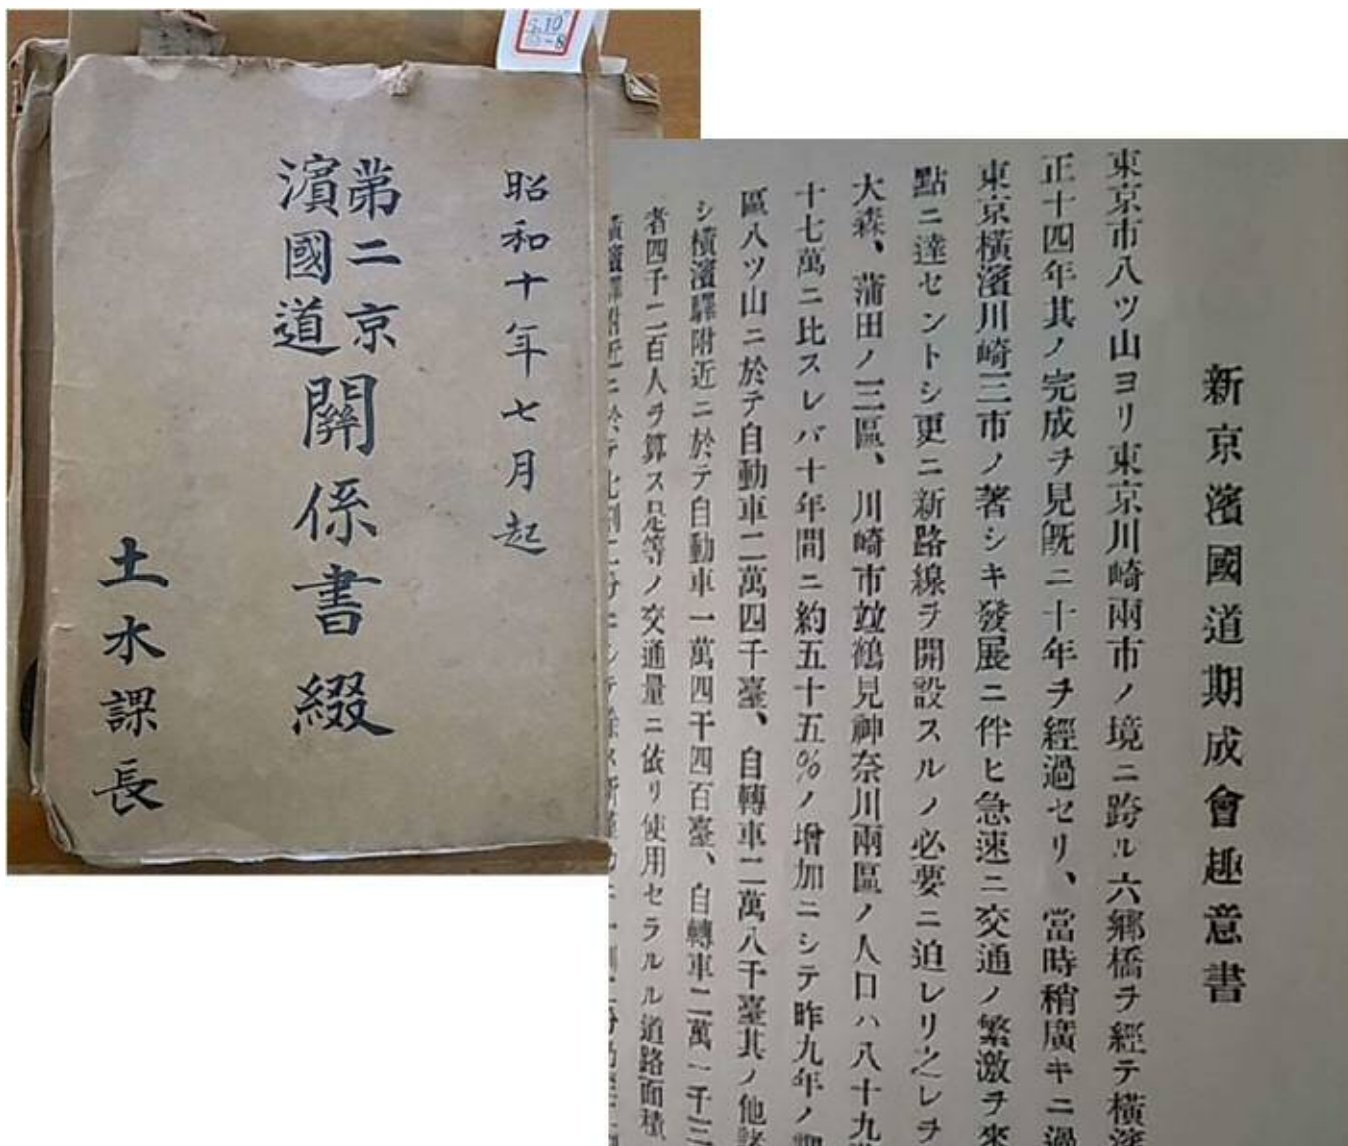 S.10
-8
昭和十年七月起
第二京
濱國道
關係書綴
土水課長
新京濱國道期成會趣意書
東京市八ツ山ヨリ東京川崎兩市ノ境ニ跨ル六鄕橋ヲ經テ橫濱
正十四年其ノ完成ヲ見旣ニ十年ヲ經過セリ、當時稍廣キニ過
東京橫濱川崎三市ノ著シキ發展ニ伴ヒ急速ニ交通ノ繁激ヲ來
點ニ達セントシ更ニ新路線ヲ開設スルノ必要ニ迫レリ之レヲ
大森、蒲田ノ三區、川崎市竝鶴見神奈川兩區ノ人口ハ八十九
十七萬ニ比スレバ十年間ニ約五十五%ノ增加ニシテ昨九年ノ
區八ツ山ニ於テ自動車二萬四千臺、自轉車二萬八千臺其ノ他諸
シ橫濱驛附近ニ於テ自動車一萬四千四百臺、自轉車二萬一千三
者四千二百人ヲ算ス是等ノ交通量ニ依リ使用セラルル道路面積
橫濱驛附近ニ於テ